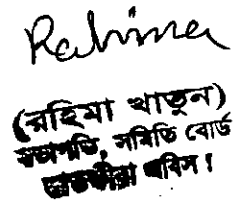 Rahima
(রহিমা খাতুন)
সভাপতি, সমিতি বোর্ড